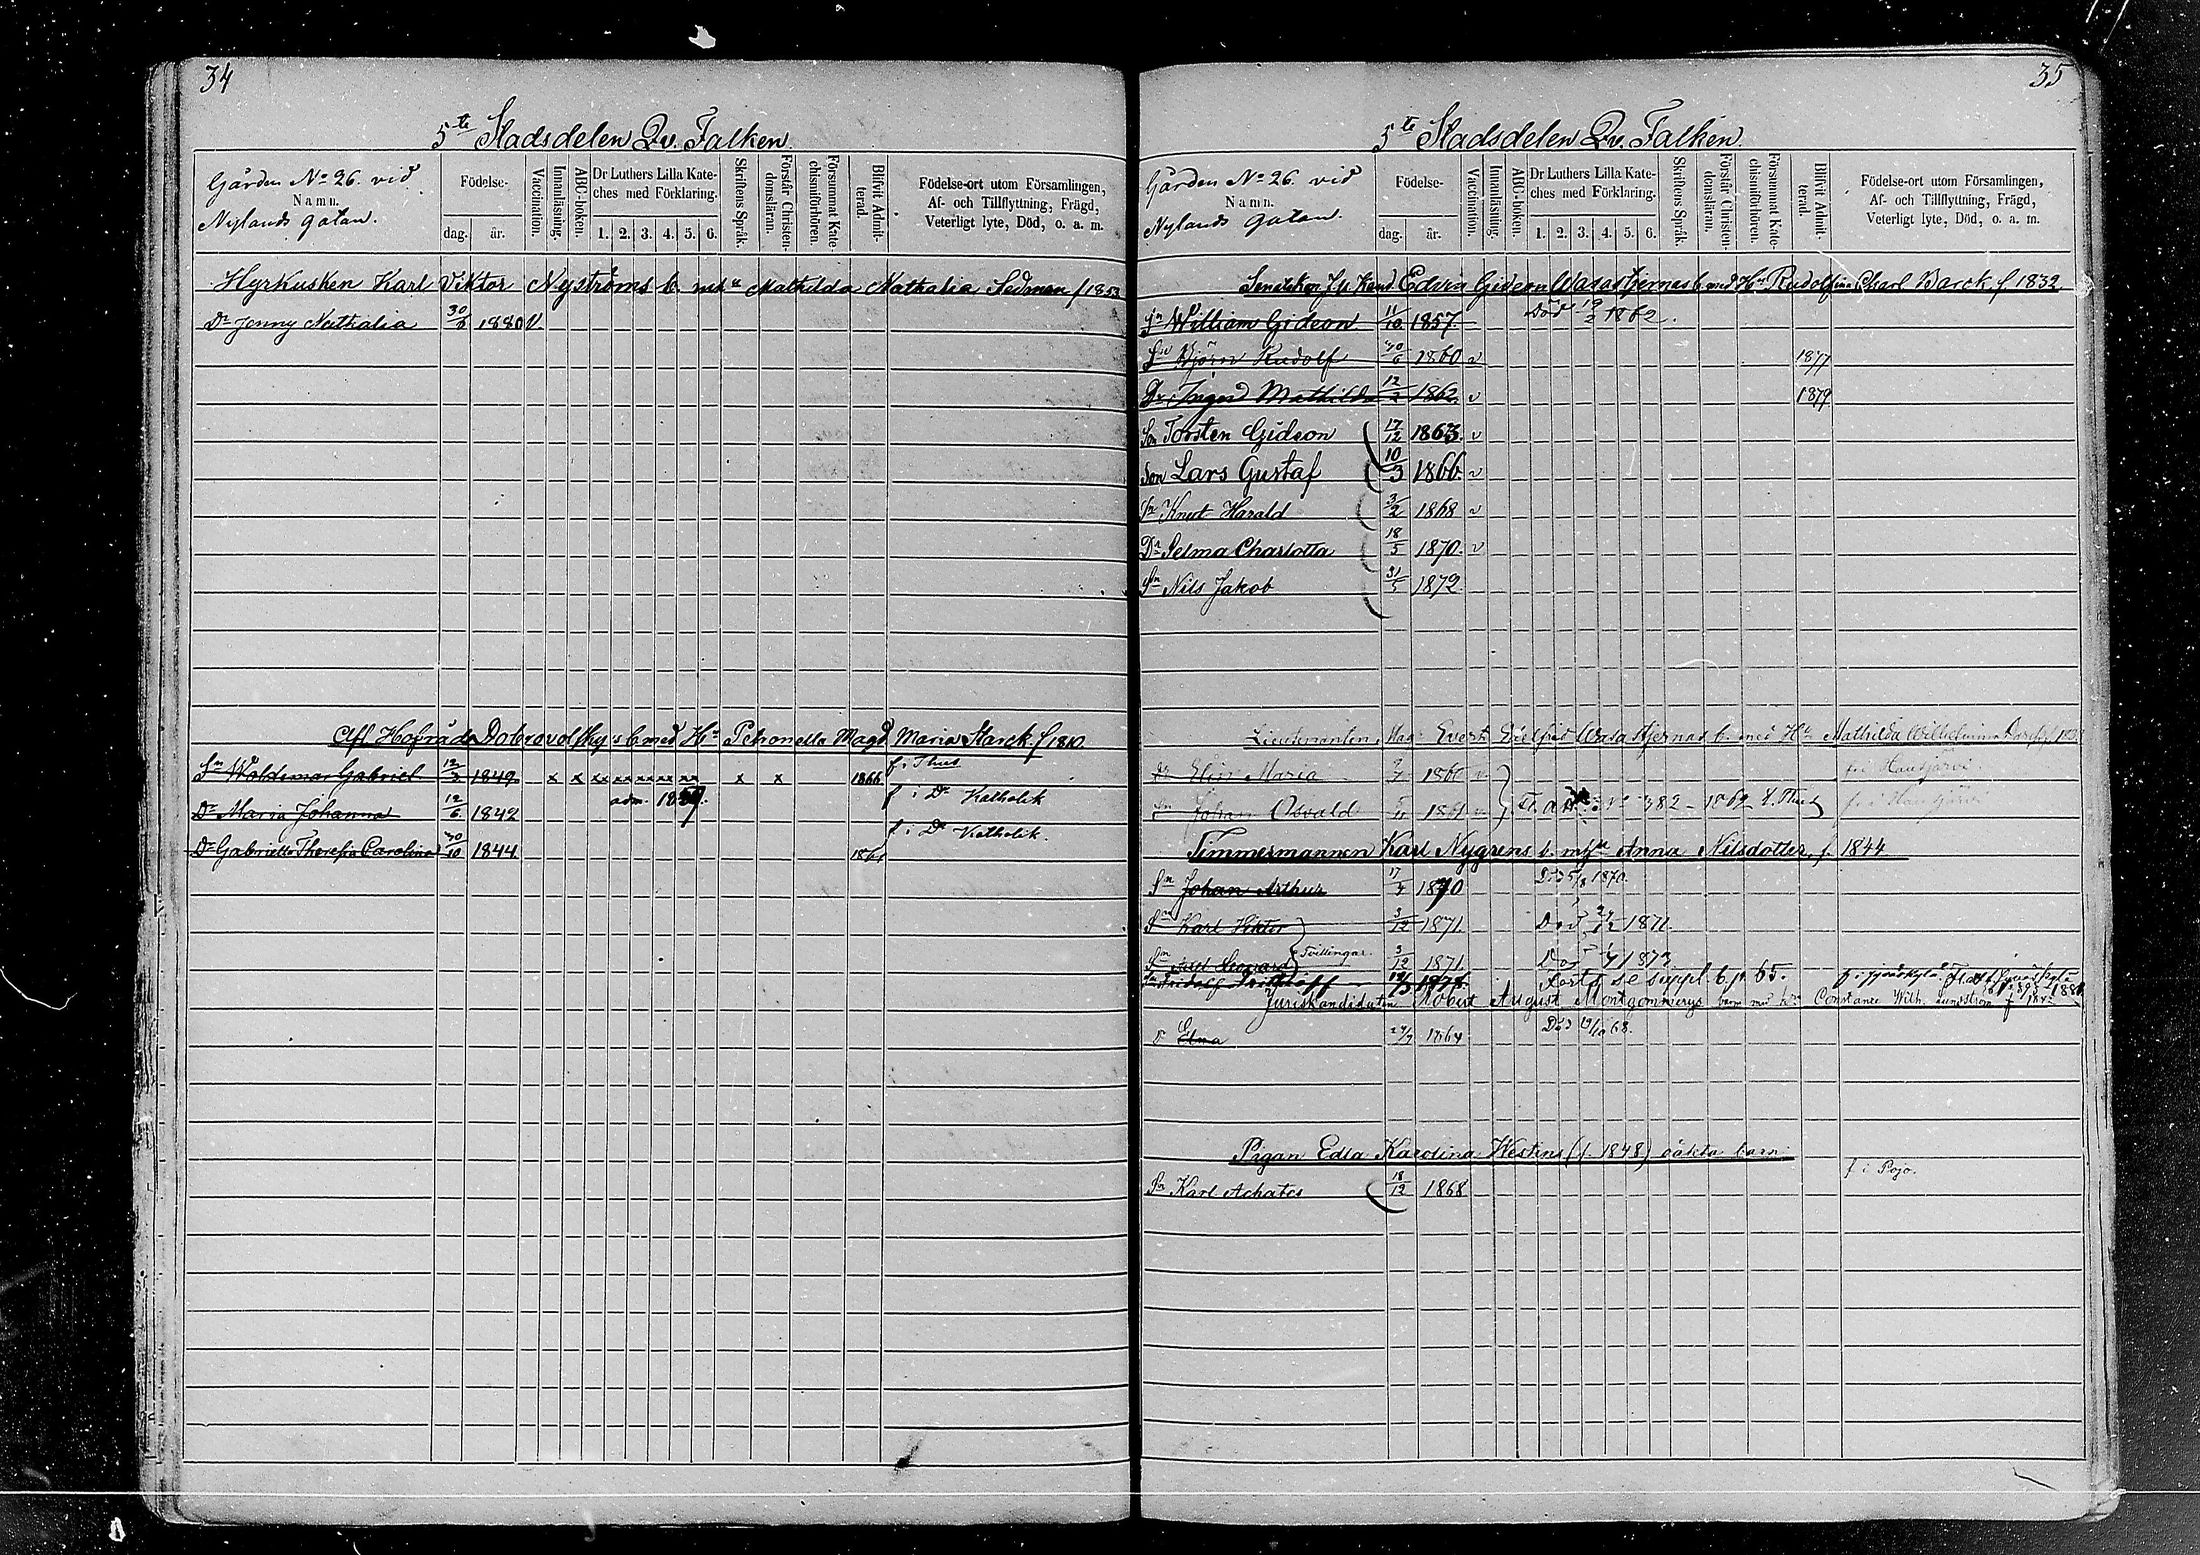 34
5te Stadsdelen Qv. Falken.
Gården No 26. vid
Namn.
Nylands gatan.
Födelse-
dag. år.
Vaccination.
Innanläsning.
ABC-boken.
Dr Luthers Lilla Kate-
ches med Förklaring.
1. 2. 3. 4. 5. 6.
Skriftens Språk.
Förstår Christen-
domsläran.
Försummat Kate-
chismiförhören.
Blifvit Admit-
terad.
Födelse-ort utom Församlingen,
Af- och Tillflyttning, Frägd,
Veterligt lyte, Död, o. a. m.
Hyrkusken Karl Viktor Nyströms b. med Mathilda Nathalia Sedman f 1853
Dr Jenny Nathalia 1880 v
Afl Hofrådet Dobrovolskys b med Hu Petronella Magd Maria Starck f 1810.
Sn Woldemar Gabriel 12/3 1849 x x xx xx xx xx xx x x 1866
Dr Maria Johanna 12/6 1842 adm. f i Do Katholik
Dr Gabriella Theresia Carolina 30/10 1844 f i Do Katholik.
35
5te Stadsdelen Qv. Falken.
Gården No 26. vid
Namn.
Nylands gatan.
Födelse-
dag. år.
Vaccination.
Innanläsning.
ABC-boken.
Dr Luthers Lilla Kate-
ches med Förklaring.
1. 2. 3. 4. 5. 6.
Skriftens Språk.
Förstår Christen-
domsläran.
Försummat Kate-
chismiförhören.
Blifvit Admit-
terad.
Födelse-ort utom Församlingen,
Af- och Tillflyttning, Frägd,
Veterligt lyte, Död, o. a. m.
Kand. Edvin Gideon Wasastjernas b med Hu Rudolfina Charl Barck f. 1832
Sn William Gideon 11/10 1857. Död 19/2 1862.
Sn Björn Rudolf 30/6 1860 v 1877
Dr Ingrid Mathilda 1862 v 1879
Son Torsten Gideon 17/12 1863. v
Son Lars Gustaf 10/3 1866. v
Sn Knut Harald 3/2 1868 v
Dr Selma Charlotta 18/5 1870. v
Sn Nils Jakob 31/5 1872.
Lieutenanten Evert Wasastjernas b. med Hu Mathilda Wilhelmina
Dr Elin Maria 1860 v f i Hausjärvi.
Sn Johan Osvald 1861 v 382 - 1862 f i Hausjärvi
Timmermannen Karl Nygrens b. m Hu Anna Nilsdotter, f. 1844
Sn Johan Arthur 17/4 1870 Död 5/8 1870.
Sn Karl Viktor 3/12 1871. Död 1871.
Sn Axel Leonard Tvillingar. 3/12 1871 Död 1873
Sn Fridolf Forts se suppl. b. p. 65.
Juriskandidaten Robert August Montgommerys barn med hu Constance Wilh. f 1842
Dr Elna 1864 Död 68.
Pigan Edla Karolina Westins (f. 1848) oäkta barn
Sn Karl Achates 18/12 1868 f i Pojo.